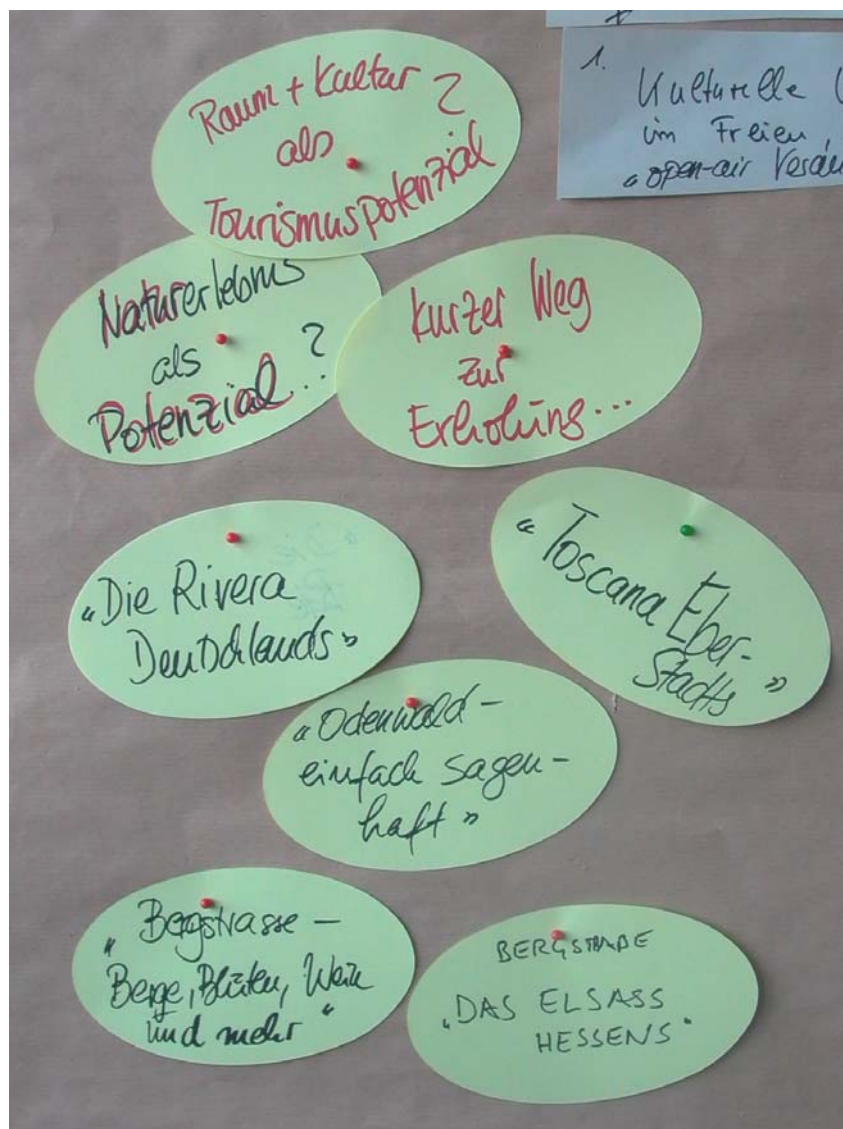 Raum + Kultur
als
Tourismuspotenzial ?
1.
Kulturelle
im Freien
"open-air
Naturerlebnis
als
Potenzial...?
Kurzer Weg
zur
Erholung...
"Die Rivera
Deutschlands"
"Toscana Eber-
stadts"
"Odenwald -
einfach sagen-
haft"
"Bergstrasse -
Berge, Blüten, Wein
und mehr"
BERGSTRAßE
"DAS ELSASS
HESSENS"